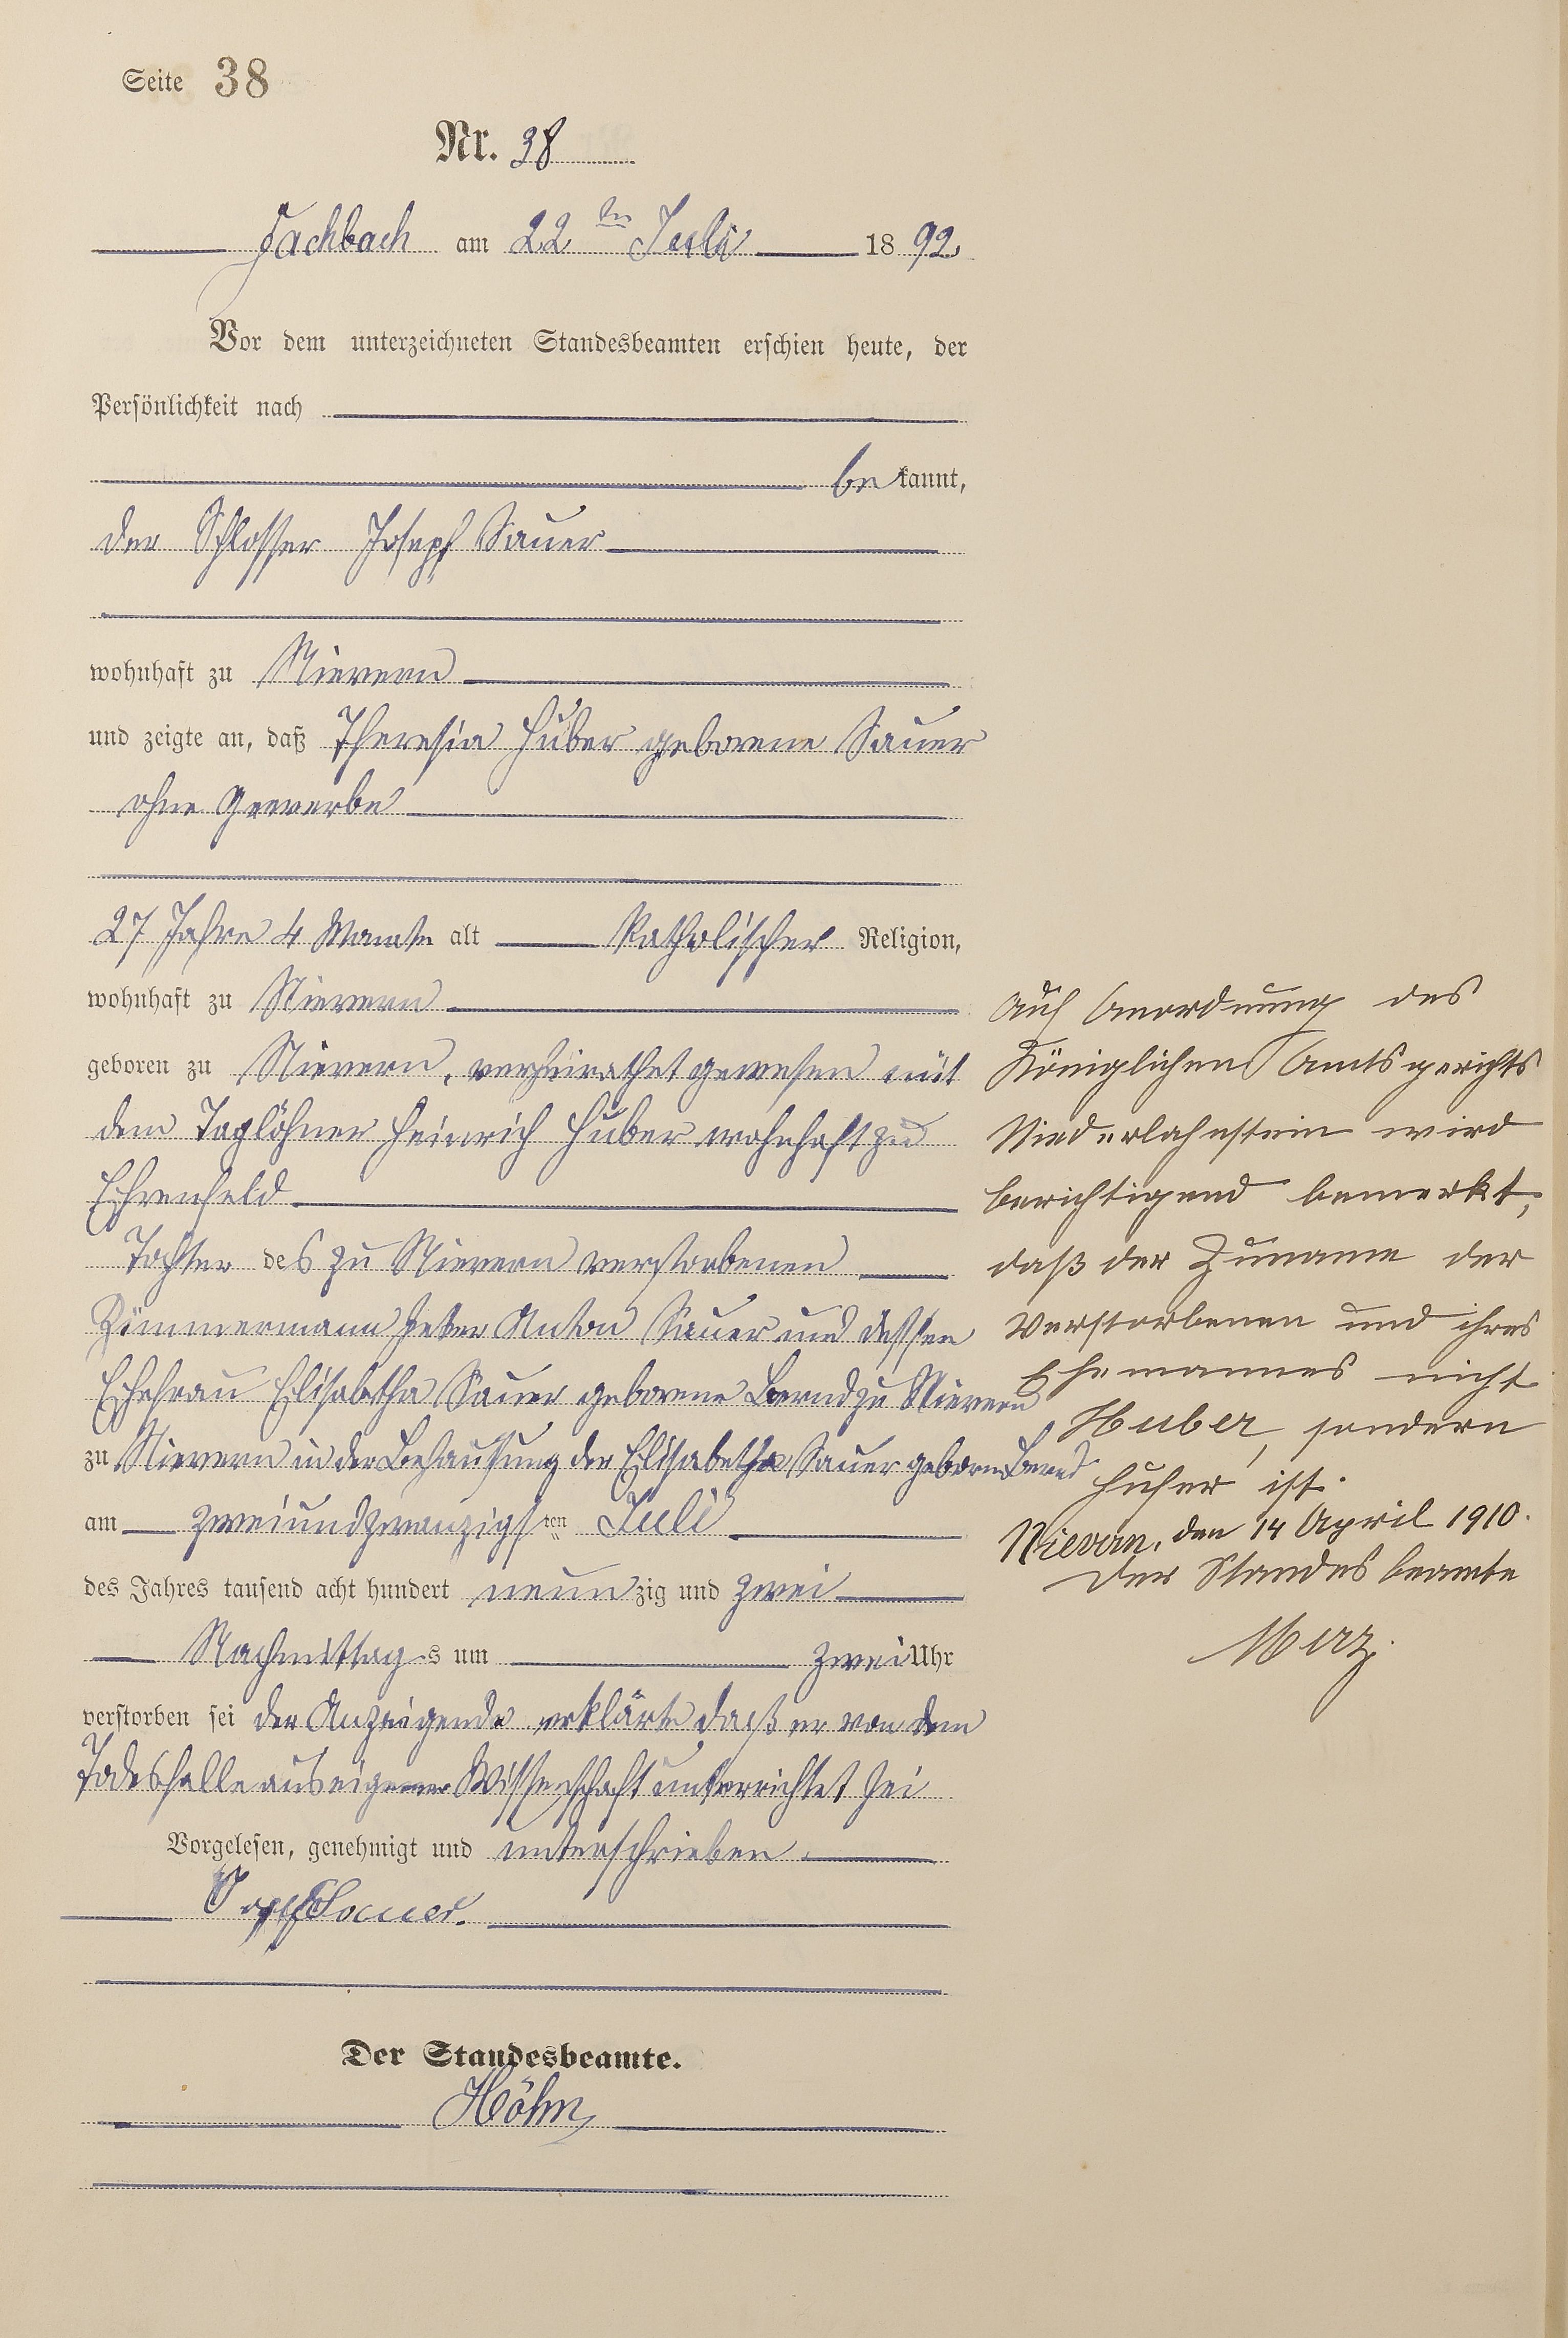 Seite 38
Nr. 38
Fachbach am 22ten Juli 1892.
Vor dem unterzeichneten Standesbeamten erschien heute, der
Persönlichkeit nach
bekannt,
der Schlosser Joseph Sauer
wohnhaft zu Nievern
und zeigte an, daß Theresia Huber geborene Sauer
ohne Gewerbe
27 Jahre 4 Monate alt Katholischer Religion,
wohnhaft zu Nievern
geboren zu Nievern, verheirathet gewesen mit
dem Taglöhner Heinrich Huber wohnhaft zu
Ehrenfeld
Tochter des zu Nievern verstorbenen
Zimmermann Peter Anton Sauer und dessen
Ehefrau Elisabetha Sauer geborene Bernd zu Nievern
zu Nievern in der Behausung der Elisabetha Sauer geborne Bernd
am zweiundzwanzigsten Juli
des Jahres tausend acht hundert neunzig und zwei
Nachmittags um zwei Uhr
verstorben sei der Anzeigende erklärte daß er von dem
Todesfalle aus eigener Wissenschaft unterrichtet sei
Vorgelesen, genehmigt und unterschrieben.
Sauer.
Der Standesbeamte.
Höhn
Auf Anordnung des
Königlichen Amtsgerichts
Niederlahnstein wird
berichtigend bemerkt,
daß der Zuname der
Verstorbenen und ihres
Ehemannes nicht
Huber, sondern
Hufer ist.
Nievern, den 14 April 1910.
Der Standesbeamte
Merz.